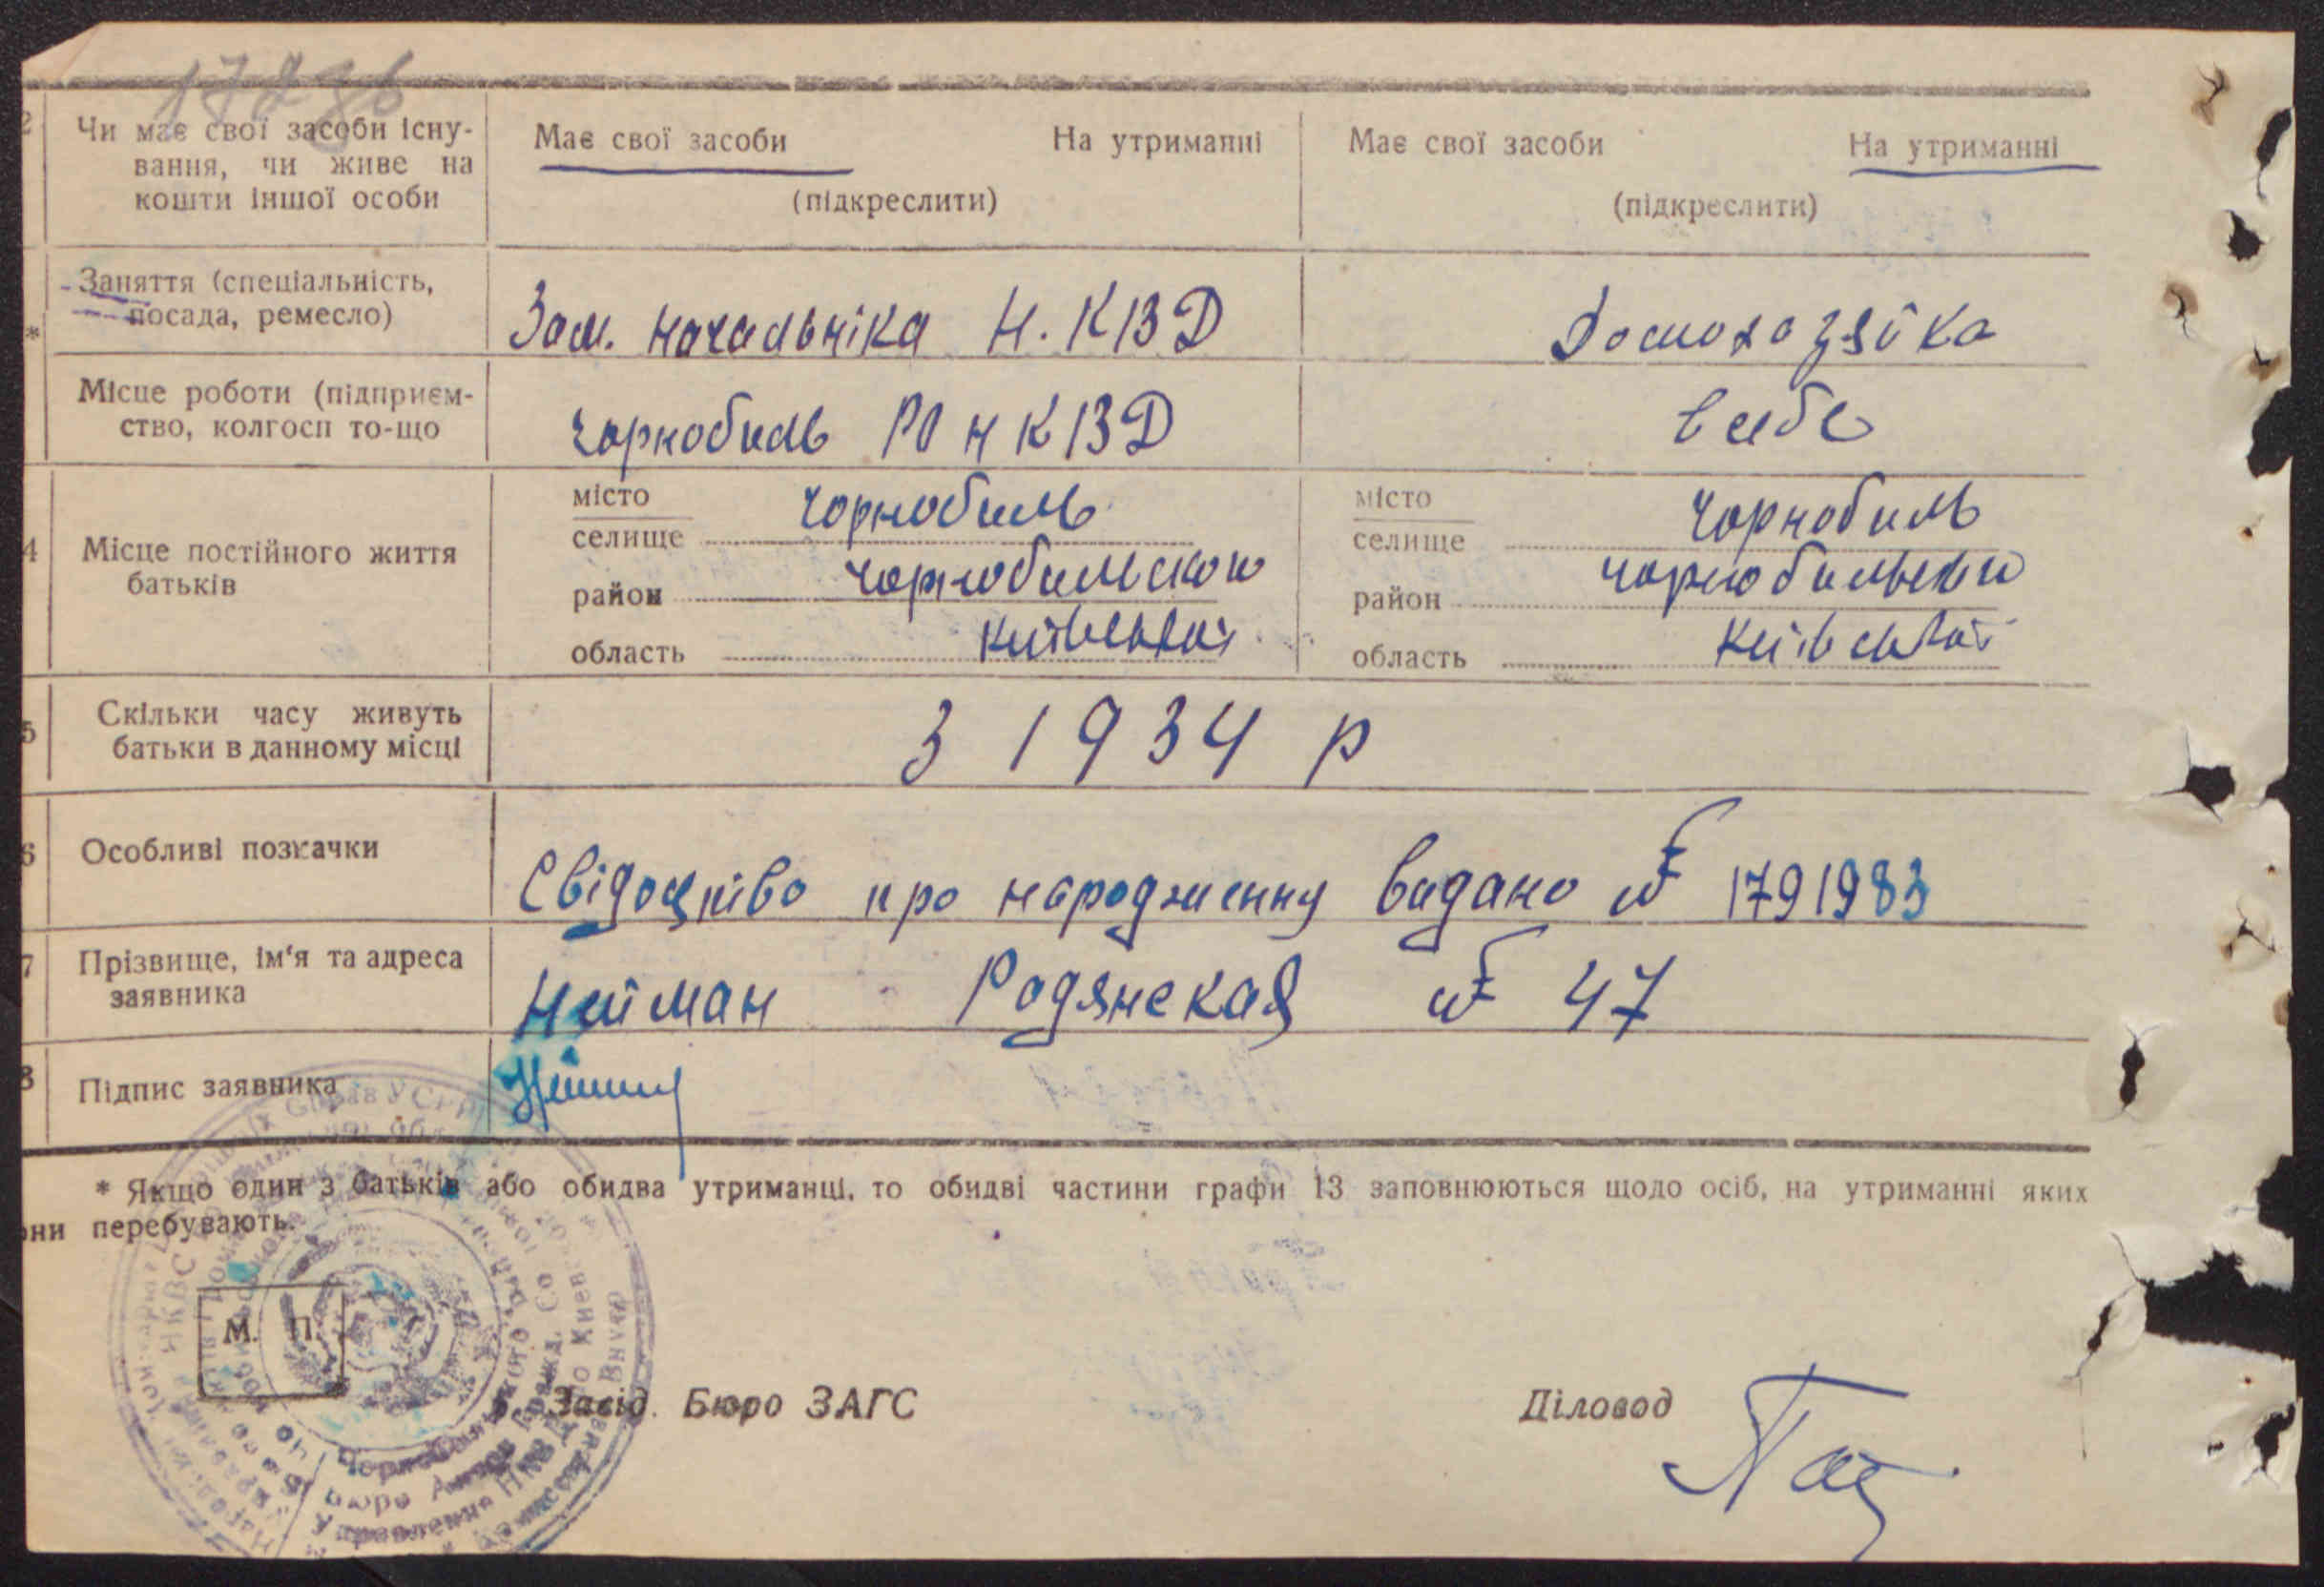 17286
Чи має свої засоби існу-
вання, чи живе на
кошти іншої особи
Має свої засоби На утриманні
(підкреслити)
Має свої засоби На утриманні
(підкреслити)
* Заняття (спеціальність,
посада, ремесло)
Зам. начальніка Н.КВД
Домохазяйка
Місце роботи (підприєм-
ство, колгосп то-що
Чорнобиль РО НКВД
в себе
4 Місце постійного життя
батьків
місто
селище Чорнобиль
район
область
місто
селище Чорнобиль
район
область
5 Скільки часу живуть
батьки в данному місці
З 1934 р
6 Особливі позначки
Свідоцтво про народженну видано № 1791983
7 Прізвище, ім'я та адреса
заявника
Нейман Радянская № 47
8 Підпис заявника
* Якщо один з батьків або обидва утриманці, то обидві частини графи 13 заповнюються щодо осіб, на утриманні яких
они перебувають.
М. П.
Завід. Бюро ЗАГС
Діловод